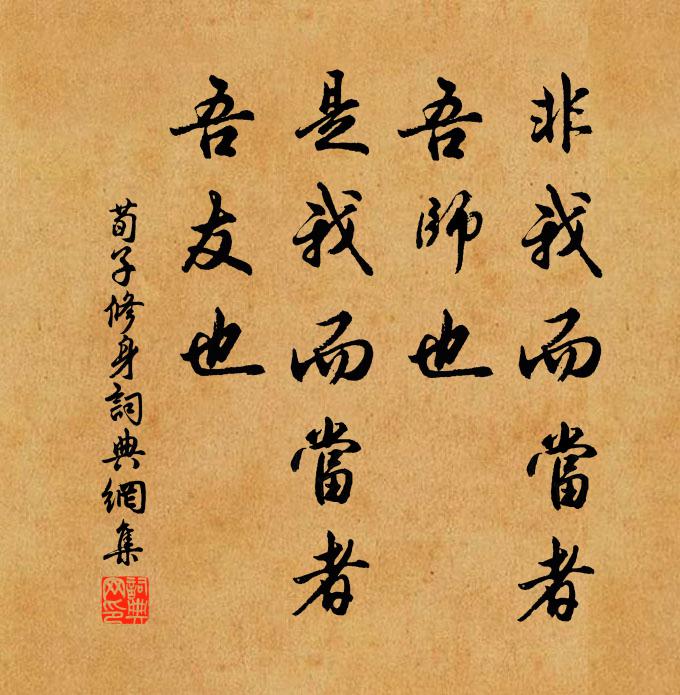 非我而當者
吾師也
是我而當者
吾友也
荀子修身詞典網集
詞典网印